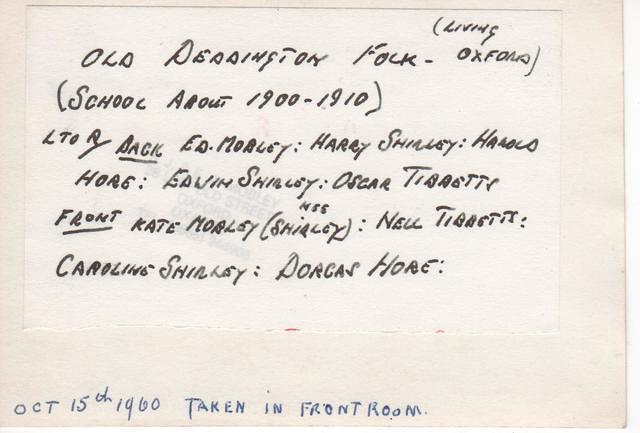 (LIVING
OLD DEDDINGTON FOLK - OXFORD)
(SCHOOL ABOUT 1900-1910)
L TO R/ BACK ED. MOBLEY: HARRY SHIRLEY: HAROLD
HORE: EDWIN SHIRLEY: OSCAR TIBBETTS
FRONT KATE MOBLEY (NEE SHIRLEY): NELL TIBBETTS:
CAROLINE SHIRLEY: DORCAS HORE:
OCT 15th 1960 TAKEN IN FRONT ROOM.